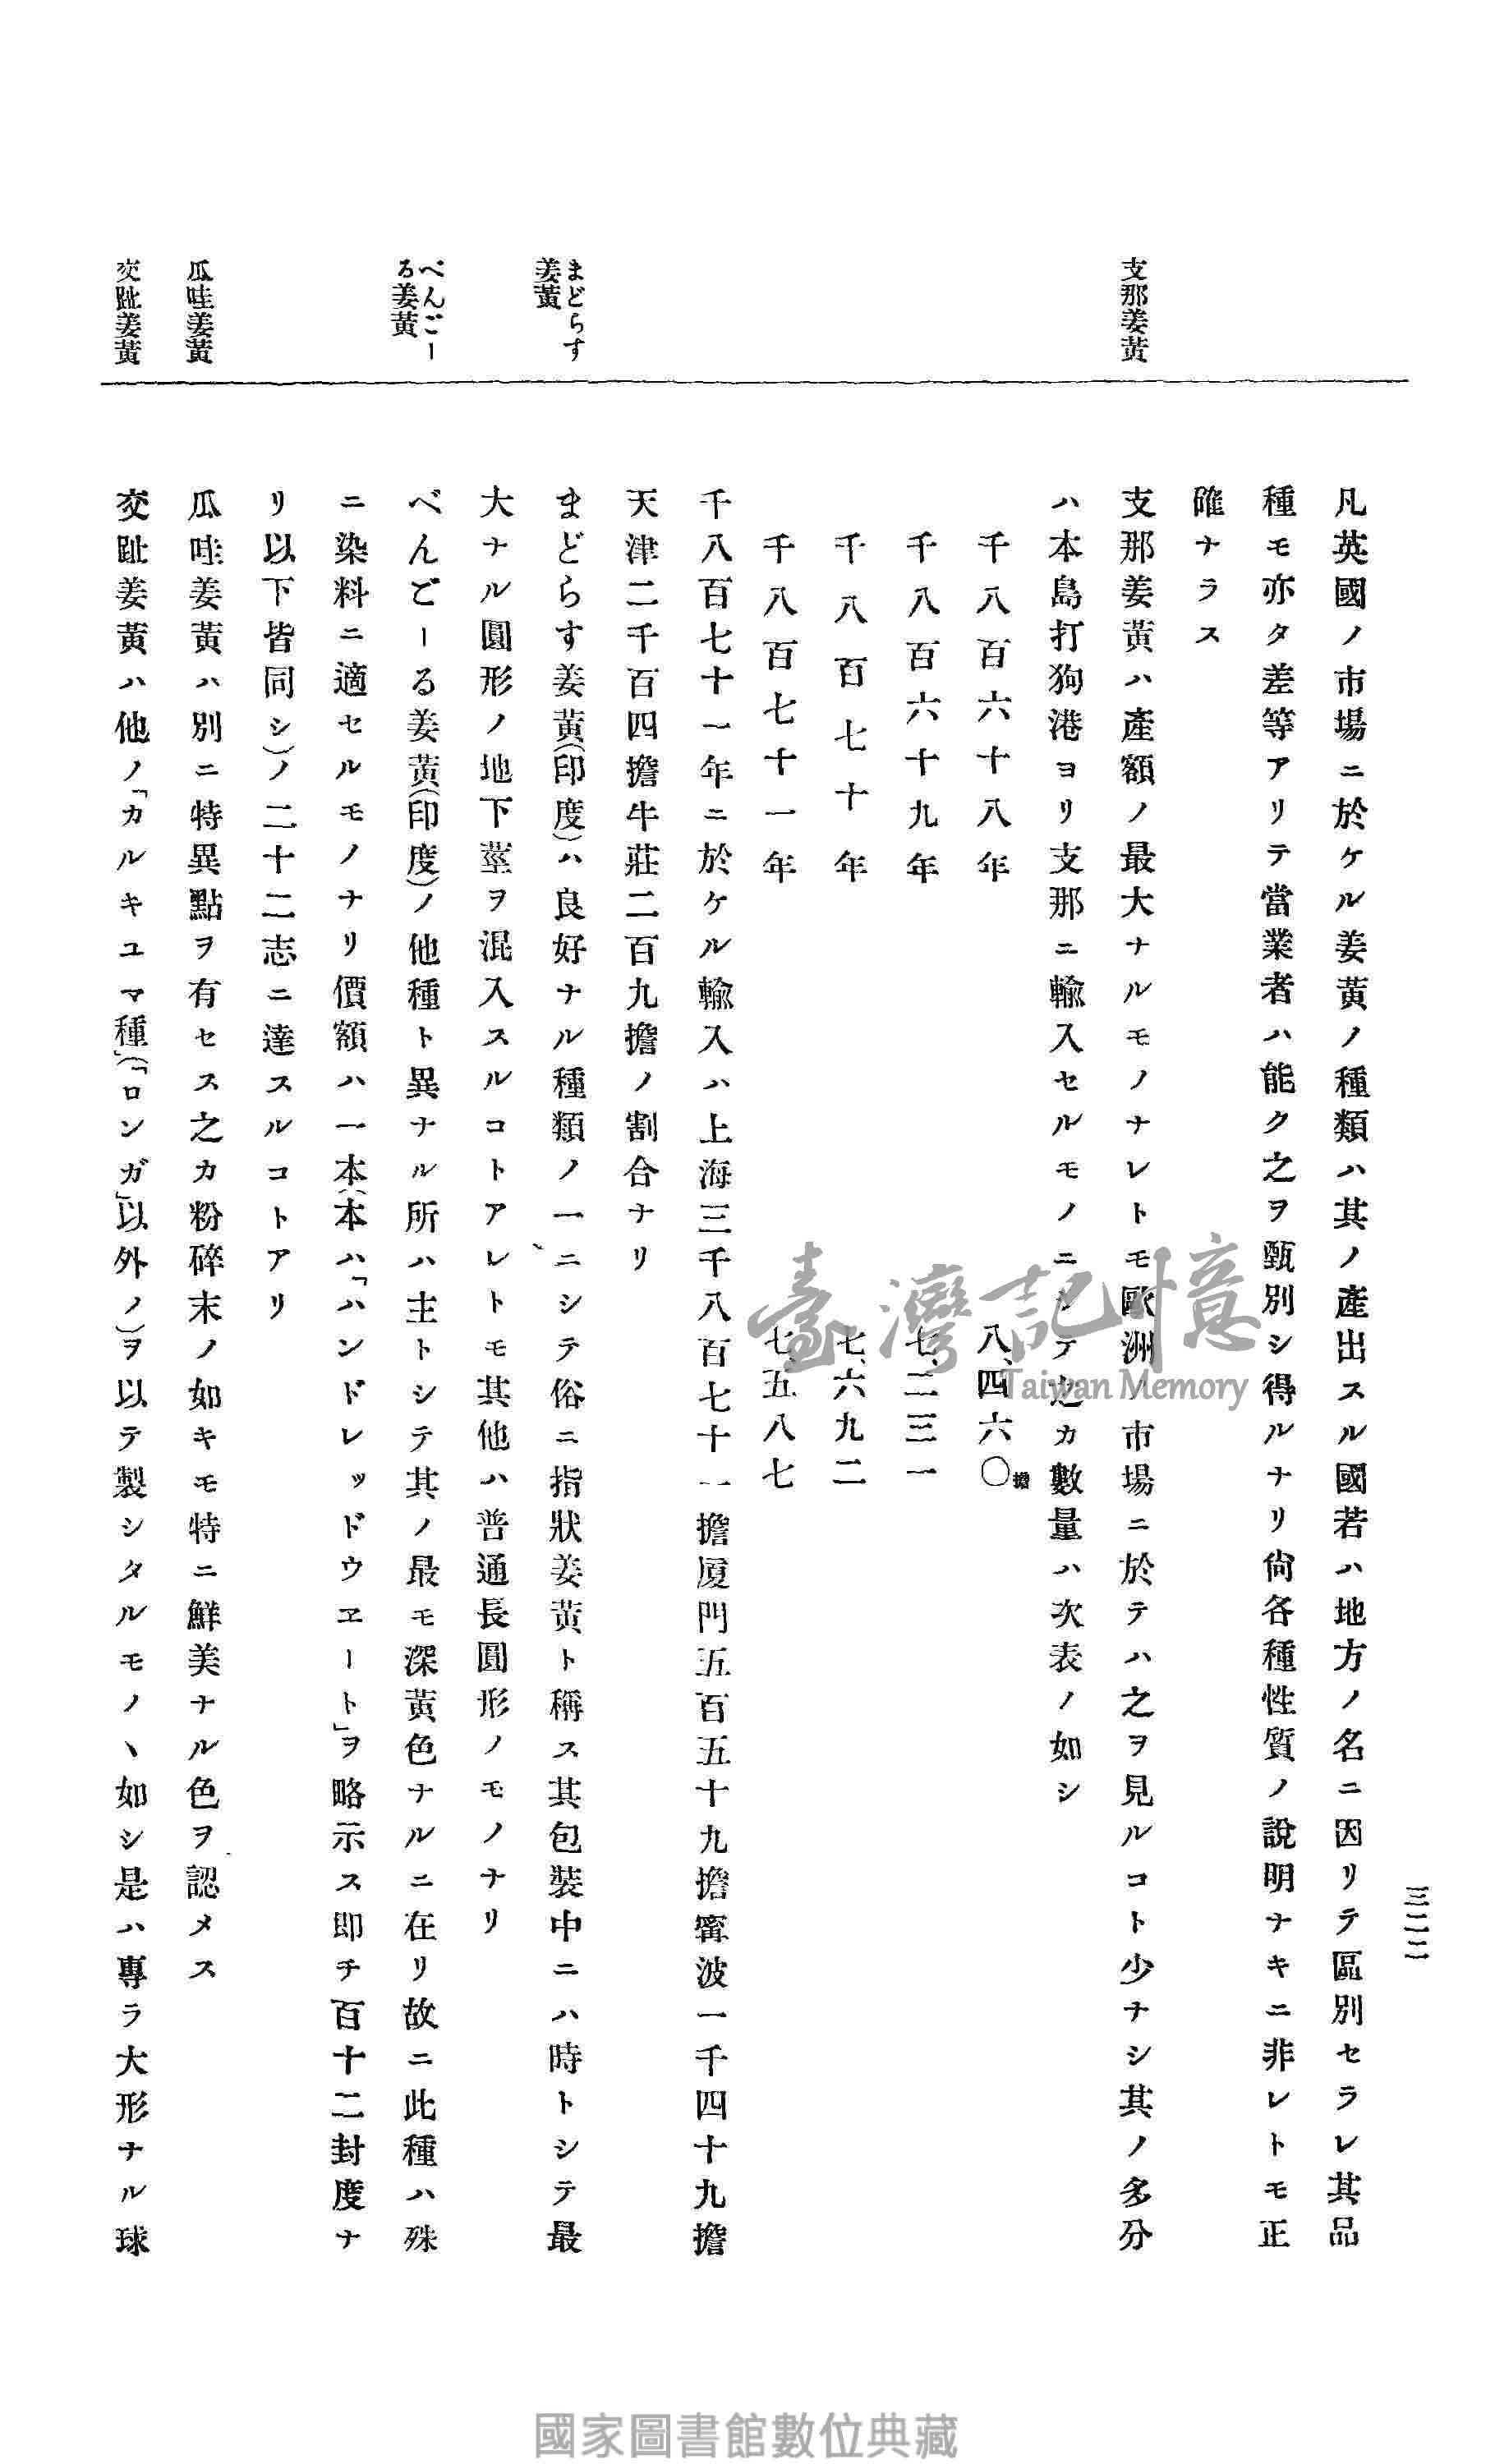 三二二
支那姜黃
まどらす
姜黃
べんごー
る姜黃
瓜哇姜黃
交趾姜黃
凡英國ノ市場ニ於ケル姜黃ノ種類ハ其ノ產出スル國若ハ地方ノ名ニ因リテ區別セラレ其品
種モ亦タ差等アリテ當業者ハ能ク之ヲ甄別シ得ルナリ尙各種性質ノ說明ナキニ非レトモ正
確ナラス
支那姜黃ハ產額ノ最大ナルモノナレトモ歐洲ノ市場ニ於テハ之ヲ見ルコト少ナシ其ノ多分
ハ本島打狗港ヨリ支那ニ輸入セルモノニシテ之カ數量ハ次表ノ如シ
千八百六十八年 八、四六〇擔
千八百六十九年 七、二三一
千八百七十年 七、六九二
千八百七十一年 七、五八七
千八百七十一年ニ於ケル輸入ハ上海三千八百七十一擔厦門五百五十九擔寗波一千四十九擔
天津二千百四擔牛莊二百九擔ノ割合ナリ
まどらす姜黃(印度)ハ良好ナル種類ノ一ニシテ俗ニ指狀姜黃ト稱ス其包裝中ニハ時トシテ最
大ナル圓形ノ地下莖ヲ混入スルコトアレトモ其他ハ普通長圓形ノモノナリ
べんごーる姜黃(印度)ノ他種ト異ナル所ハ主トシテ其ノ最モ深黃色ナルニ在リ故ニ此種ハ殊
ニ染料ニ適セルモノナリ價額ハ一本(本ハ「ハンドレッドウヱート」ヲ略示ス即チ百十二封度ナ
リ以下皆同シ)ノ二十二志ニ達スルコトアリ
瓜哇姜黃ハ別ニ特異點ヲ有セス之カ粉碎末ノ如キモ特ニ鮮美ナル色ヲ認メス
交趾姜黃ハ他ノ「カルキユマ種」(「ロンガ」以外ノ)ヲ以テ製シタルモノヽ如シ是ハ專ラ大形ナル球
臺灣記憶
Taiwan Memory
國家圖書館數位典藏